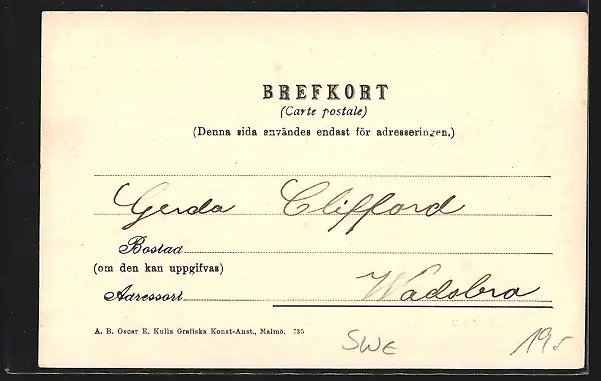 BREFKORT
(Carte postale)
(Denna sida användes endast för adresseringen.)
Gerda Clifford
Bostad
(om den kan uppgifvas)
Adressort Wadsbro
A. B. Oscar E. Kulls Grafiska Konst-Anst., Malmö. 735
SWE